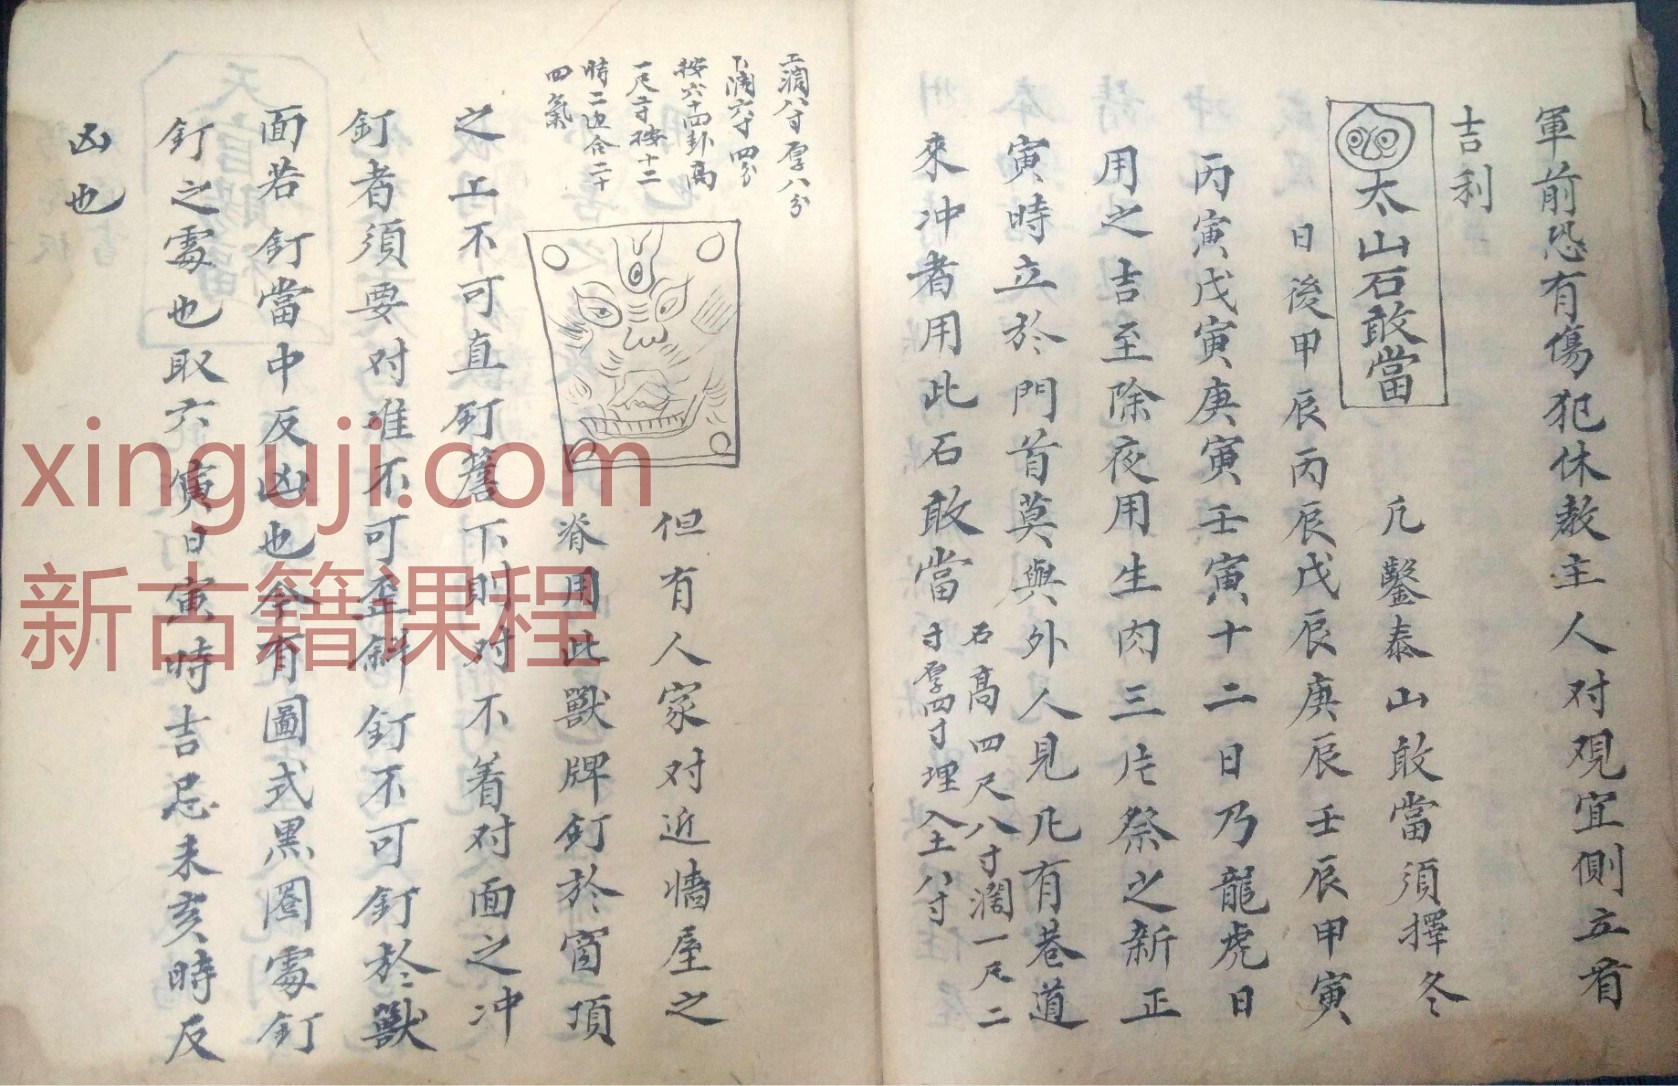 軍前恐有傷犯休教主人对观宜側立者
吉利
太山石敢當
凡鑿泰山敢當須擇冬
日後甲辰丙辰戊辰庚辰壬辰甲寅
丙寅戊寅庚寅壬寅十二日乃龍虎日
用之吉至除夜用生肉三片祭之新正
寅時立於門首莫與外人見凡有巷道
來冲者用此石敢當
石高四尺八寸濶一尺二
寸厚四寸埋入土八寸
上濶八寸厚八分
下濶六寸四分
按六十四卦高
一尺二寸按十二
時二边合二十
四氣
但有人家对近墙屋之
脊用此獸牌釘於窗頂
之上不可直釘簷下时对不着对面之冲
釘者須要对准不可歪斜釘不可釘於獸
面若釘當中反凶也今有圖式黑圈處釘
釘之處也取六寅日寅時吉忌未亥時反
凶也
xinguji.com
新古籍课程